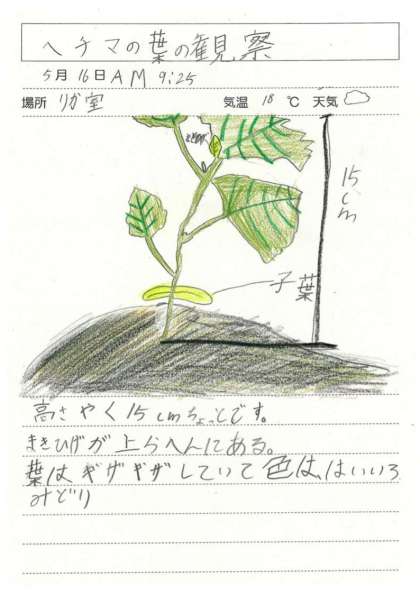 ヘチマの葉の観察
5月16日AM 9:25
場所 りか室 気温 18 ℃ 天気
まきひげ
15cm
子葉
高さやく15cmちょっとです。
まきひげが上らへんにある。
葉はギザギザしていて色は、はいいろ
みどり